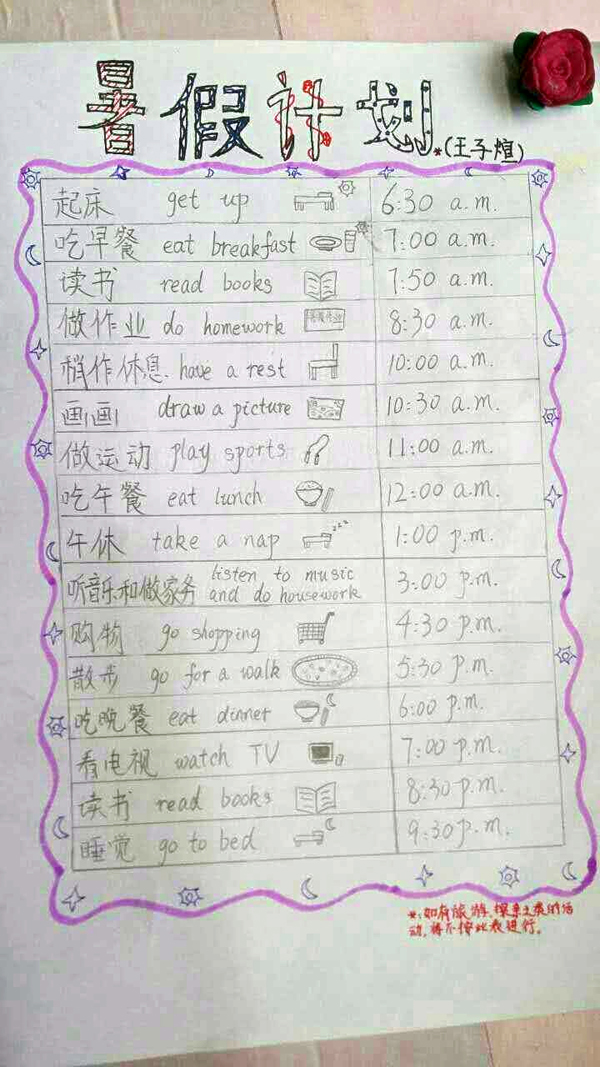 暑假计划
*(王子煊)
起床 get up 6:30 a.m.
吃早餐 eat breakfast 7:00 a.m.
读书 read books 7:50 a.m.
做作业 do homework 8:30 a.m.
稍作休息 have a rest 10:00 a.m.
画画 draw a picture 10:30 a.m.
做运动 play sports 11:00 a.m.
吃午餐 eat lunch 12:00 a.m.
午休 take a nap zzz 1:00 p.m.
听音乐和做家务 listen to music
and do housework 3:00 p.m.
购物 go shopping 4:30 p.m.
散步 go for a walk 5:30 p.m.
吃晚餐 eat dinner 6:00 p.m.
看电视 watch TV 7:00 p.m.
读书 read books 8:30 p.m.
睡觉 go to bed 9:30 p.m.
*:如有旅游、探亲之类的活
动,将不按此表进行。